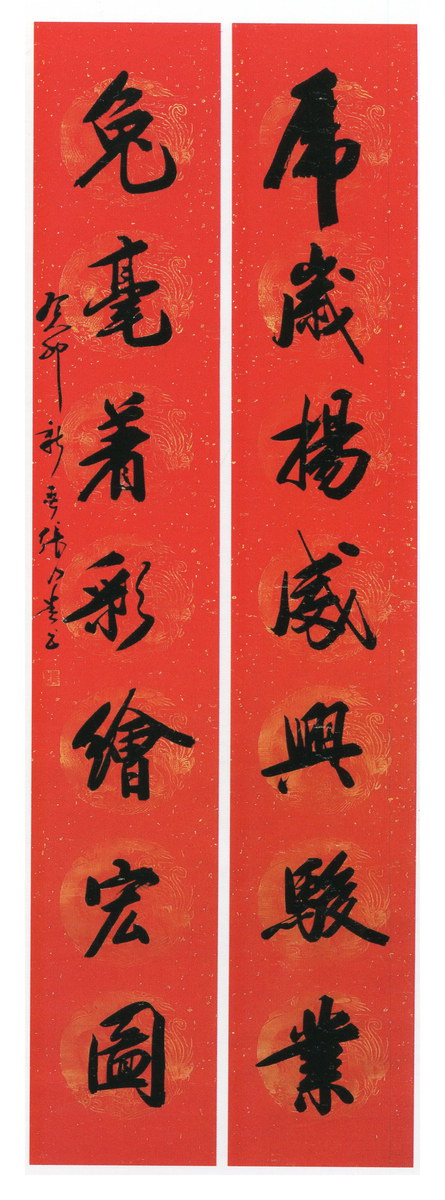 虎歲揚威興駿業
兔毫着彩繪宏圖
癸卯新春張乃